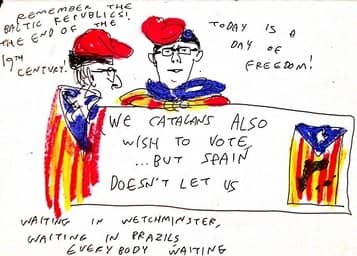 REMEMBER THE
BALTIC REPUBLICS!
THE END OF THE
19TH
CENTURY!
TODAY IS A
DAY OF
FREEDOM!
WE CATALANS ALSO
WISH TO VOTE,
...BUT SPAIN
DOESN'T LET US
WAITING IN WETCHMINSTER,
WAITING IN BRAZILS
EVERYBODY WAITING